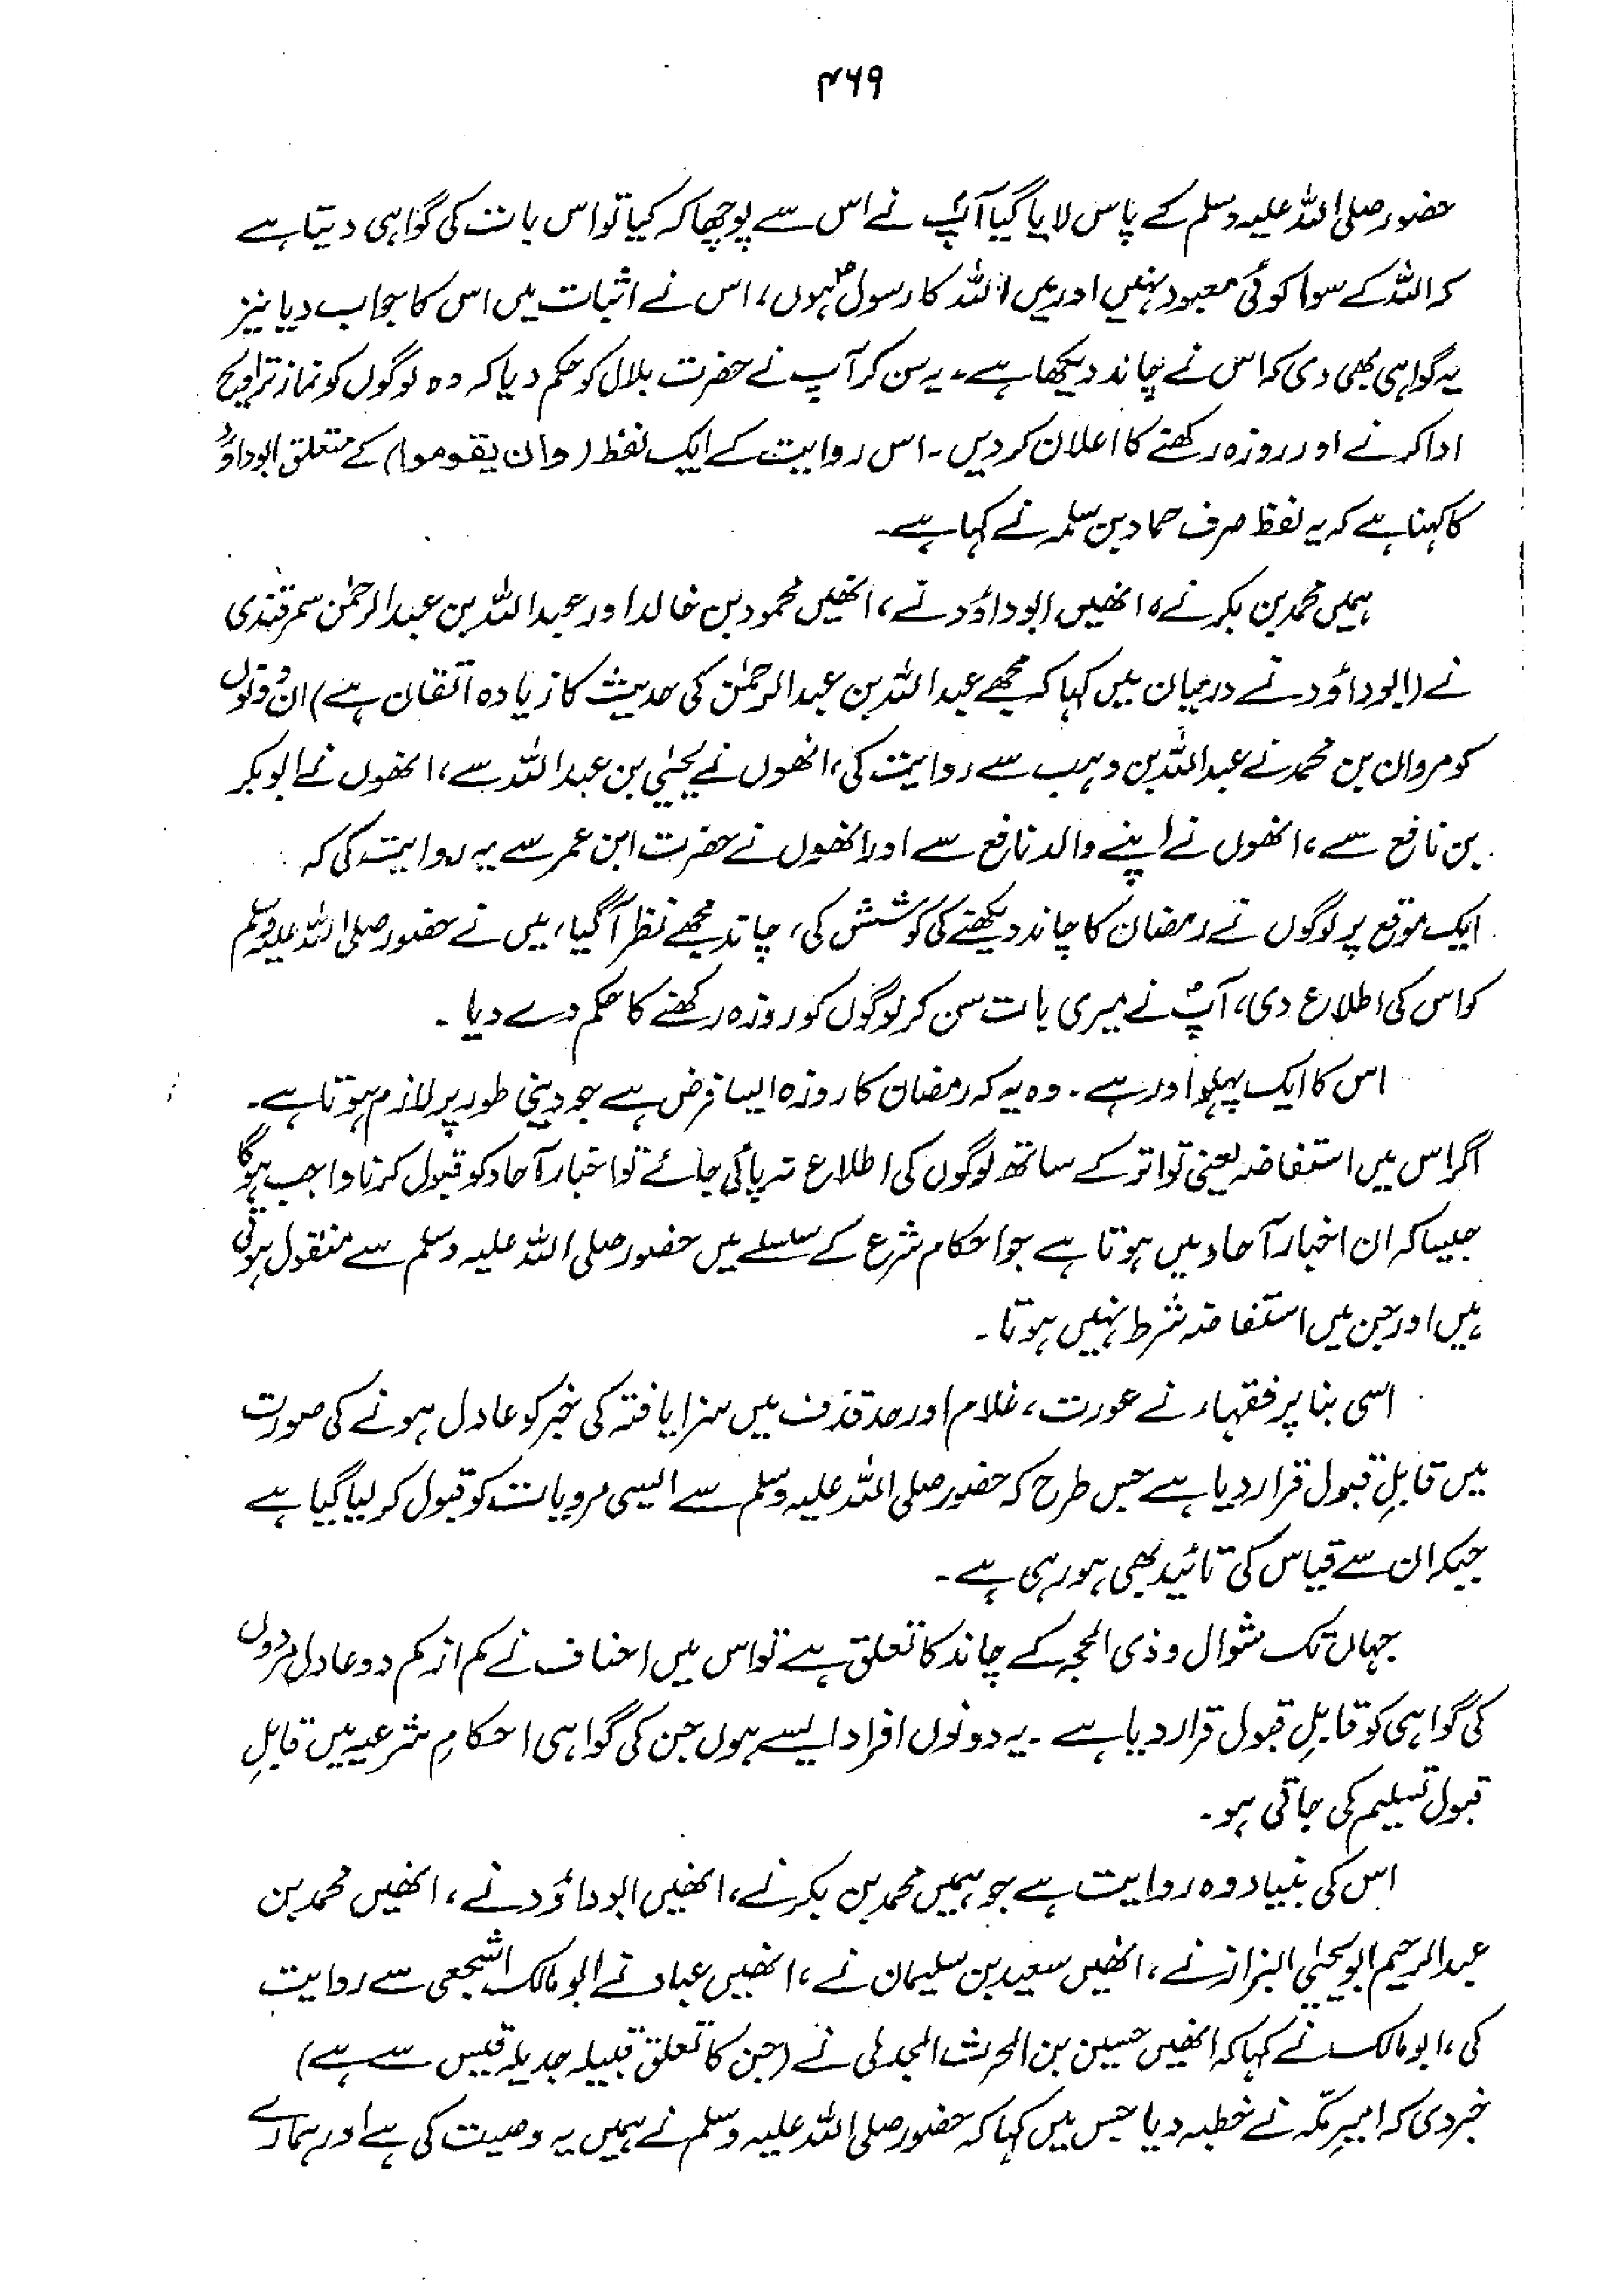 ۴۶۹
حضور صلی اللہ علیہ وسلم کے پاس لایا گیا آپؐ نے اس سے پوچھا کہ کیا تو اس بات کی گواہی دیتا ہے
کہ اللہ کے سوا کوئی معبود نہیں اور میں اللہ کا رسول ہوں، اس نے اثبات میں اس کا جواب دیا نیز
یہ گواہی بھی دی کہ اس نے چاند دیکھا ہے۔ یہ سن کر آپ نے حضرت بلال کو حکم دیا کہ وہ لوگوں کو نماز تراویح
ادا کرنے اور روزہ رکھنے کا اعلان کردیں۔ اس روایت کے ایک لفظ (وان یقوموا) کے متعلق ابوداؤد
کا کہنا ہے کہ یہ لفظ صرف حماد بن سلمہ نے کہا ہے۔
ہمیں محمد بن بکر نے، انھیں ابوداؤد نے، انھیں محمود بن خالد اور عبداللہ بن عبدالرحمٰن سمرقندی
نے (ابوداؤد نے درمیان میں کہا کہ مجھے عبداللہ بن عبدالرحمٰن کی حدیث کا زیادہ اتقان ہے) ان دونوں
کو مروان بن محمد نے عبداللہ بن وہب سے روایت کی، انھوں نے یحییٰ بن عبداللہ سے، انھوں نے ابوبکر
بن نافع سے، انھوں نے اپنے والد نافع سے اور انھوں نے حضرت ابن عمر سے یہ روایت کی کہ
ایک موقع پر لوگوں نے رمضان کا چاند دیکھنے کی کوشش کی، چاند مجھے نظر آگیا، میں نے حضور صلی اللہ علیہ وسلم
کو اس کی اطلاع دی، آپؐ نے میری بات سن کر لوگوں کو روزہ رکھنے کا حکم دے دیا۔
اس کا ایک پہلو اور ہے۔ وہ یہ کہ رمضان کا روزہ ایسا فرض ہے جو دینی طور پر لازم ہوتا ہے۔
اگر اس میں استفاضہ یعنی تواتر کے ساتھ لوگوں کی اطلاع نہ پائی جائے تو اخبار آحاد کو قبول کرنا واجب ہوگا
جیسا کہ ان اخبار آحاد میں ہوتا ہے جو احکام شرع کے سلسلے میں حضور صلی اللہ علیہ وسلم سے منقول ہوتی
ہیں اور جن میں استفاضہ شرط نہیں ہوتا۔
اسی بنا پر فقہاء نے عورت، غلام اور حد قذف میں سزا یافتہ کی خبر کو عادل ہونے کی صورت
میں قابلِ قبول قرار دیا ہے جس طرح کہ حضور صلی اللہ علیہ وسلم سے ایسی مرویات کو قبول کرلیا گیا ہے
جبکہ ان سے قیاس کی تائید بھی ہو رہی ہے۔
جہاں تک شوال و ذی الحجہ کے چاند کا تعلق ہے تو اس میں احناف نے کم از کم دو عادل مردوں
کی گواہی کو قابلِ قبول قرار دیا ہے۔ یہ دونوں افراد ایسے ہوں جن کی گواہی احکامِ شرعیہ میں قابلِ
قبول تسلیم کی جاتی ہو۔
اس کی بنیاد وہ روایت ہے جو ہمیں محمد بن بکر نے، انھیں ابوداؤد نے، انھیں محمد بن
عبدالرحیم ابویحییٰ البزاز نے، انھیں سعید بن سلیمان نے، انھیں عباد نے ابومالک اشجعی سے روایت
کی، ابومالک نے کہا کہ انھیں حسین بن الحرث الجدلی نے (جن کا تعلق قبیلہ جدیلہ قیس سے ہے)
خبر دی کہ امیرِ مکّہ نے خطبہ دیا جس میں کہا کہ حضور صلی اللہ علیہ وسلم نے ہمیں یہ وصیت کی ہے اور ہمارے